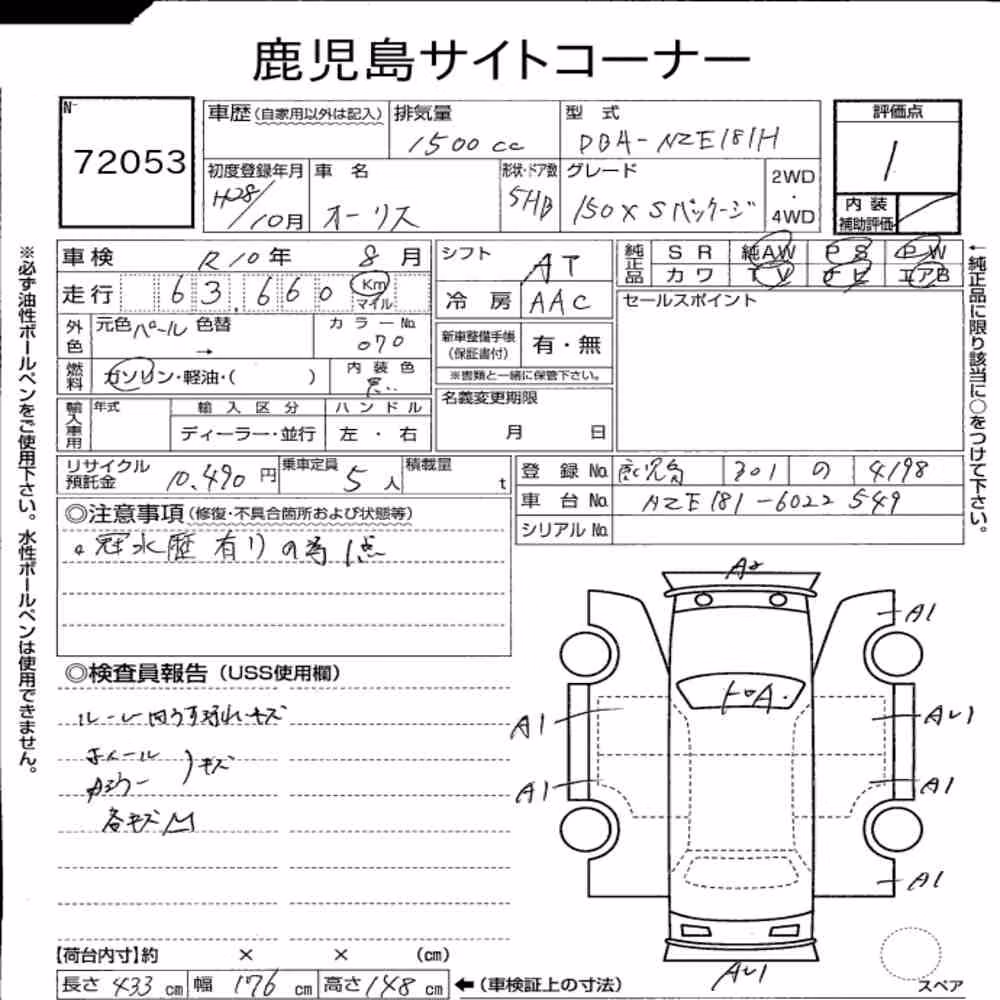 鹿児島サイトコーナー
No 72053
車歴(自家用以外は記入) 排気量 1500cc 型式 DBA-NZE181H
評価点 1
初度登録年月 H28/10月 車名 オーリス 形状・ドア数 5HB グレード 150X Sパッケージ 2WD・4WD
内装補助評価
車検 R10年 8月
走行 63,660 Km マイル
外色 元色 パール 色替 → カラーNo. 070
燃料 ガソリン・軽油・( ) 内装色 黒
輸入車用 年式 輸入区分 ハンドル
ディーラー・並行 左・右
シフト AT
冷房 AAC
新車整備手帳(保証書付) 有・無
※書類と一緒に保管下さい。
名義変更期限
月 日
純正品 SR 純AW PS PW
カワ TV ナビ エアB
セールスポイント
リサイクル預託金 10,490円 乗車定員 5人 積載量 t
登録No. 鹿児島 301 の 4198
車台No. NZE181-6022549
シリアルNo.
◎注意事項(修復・不具合箇所および状態等)
。冠水歴有りの為1点
◎検査員報告(USS使用欄)
キズ
ホイール
キズ
各キズ凹
【荷台内寸】約 × × (cm)
長さ 433 cm 幅 176 cm 高さ 148 cm ←(車検証上の寸法)
A2
A1
A1
AU1
A1
A1
A1
AU1
スペア
※必ず油性ボールペンをご使用下さい。水性ボールペンは使用できません。
←純正品に限り該当に○をつけて下さい。